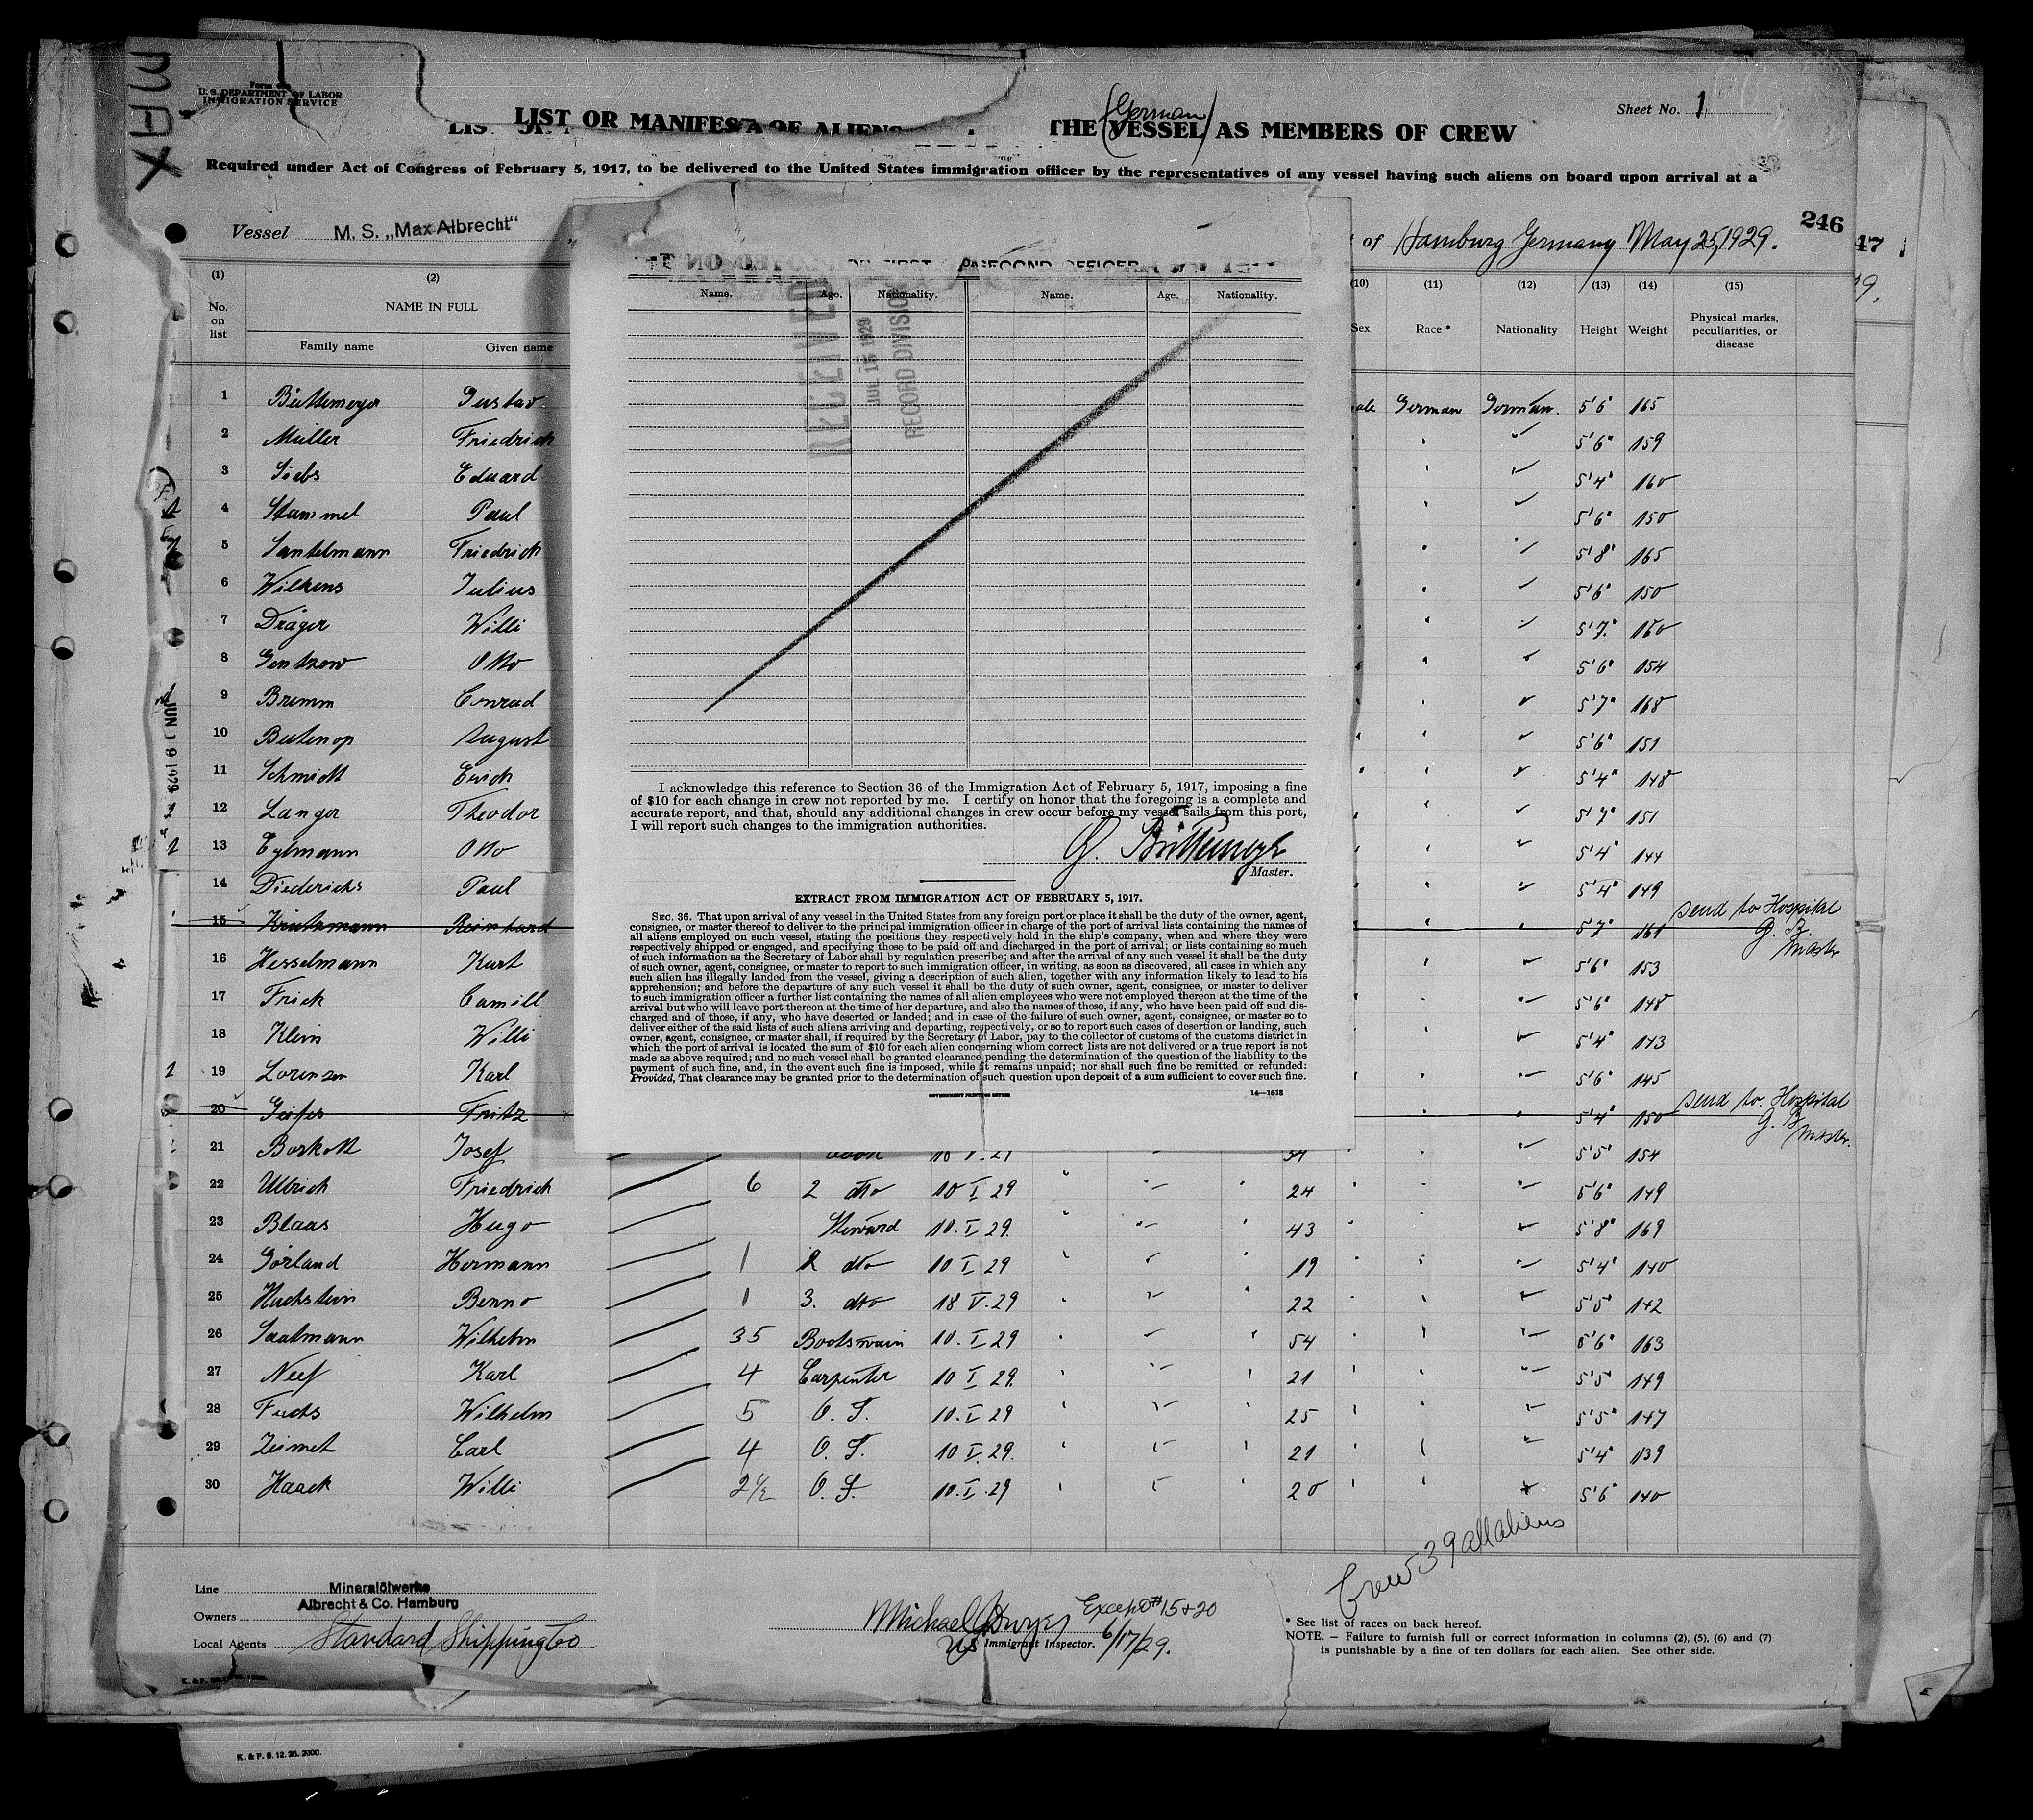 MAX
Form 689
U. S. DEPARTMENT OF LABOR
IMMIGRATION SERVICE
Sheet No. 1
LIST OR MANIFEST OF ALIENS THE (German) VESSEL AS MEMBERS OF CREW
Required under Act of Congress of February 5, 1917, to be delivered to the United States immigration officer by the representatives of any vessel having such aliens on board upon arrival at a
Vessel M. S. „Max Albrecht“ of Hamburg Germany May 25, 1929.
246
47
(1) (2) (10) (11) (12) (13) (14) (15)
No. on list NAME IN FULL Sex Race * Nationality Height Weight Physical marks, peculiarities, or disease
Family name Given name
OR FIRST OR SECOND OFFICER
Name. Age. Nationality. Name. Age. Nationality.
RECEIVED
JUL 15 1929
RECORD DIVISION
JUN 19 1929
1 Büttemeyer Gustav ale German German. 5'6" 165
2 Müller Friedrich 5'6" 159
3 Siebs Eduard 5'4" 160
4 Stammel Paul 5'6" 150
5 Santelmann Friedrich 5'8" 165
6 Wilkens Julius 5'6" 150
7 Dräger Willi 5'7" 160
8 Gentzow Otto 5'6" 154
9 Bremm Conrad 5'7" 168
10 Butenop August 5'6" 151
11 Schmidt Erich 5'4" 148
12 Langer Theodor 5'7" 151
13 Eylmann Otto 5'4" 144
14 Diederichs Paul 5'4" 149
15 Reinhard 5'7" 161 send to Hospital G. B. Master
16 Hesselmann Kurt 5'6" 153
17 Frick Camill 5'6" 148
18 Klein Willi 5'4" 143
19 Lorenzen Karl 5'6" 145
20 Fritz 5'4" 150 send to Hospital G. B. Master.
21 Borkott Josef 5'5" 154
22 Ullrich Friedrich 6 2 dto 10 I 29 24 5'6" 149
23 Blaas Hugo Steward 10. I. 29. 43 5'8" 169
24 Görland Hermann 1 2 dto 10 I. 29 19 5'4" 140
25 Huchstein Benno 1 3. dto 18 V. 29 22 5'5" 142
26 Saatmann Wilhelm 35 Bootswain 10. I. 29 54 5'6" 163
27 Neef Karl 4 Carpenter 10 I 29. 21 5'5" 149
28 Fuchs Wilhelm 5 O. S. 10. I. 29 25 5'5" 147
29 Zismet Carl 4 O. S. 10 I. 29. 21 5'4" 139
30 Haack Willi 2½ O. S. 10. I. 29 20 5'6" 140
I acknowledge this reference to Section 36 of the Immigration Act of February 5, 1917, imposing a fine
of $10 for each change in crew not reported by me. I certify on honor that the foregoing is a complete and
accurate report, and that, should any additional changes in crew occur before my vessel sails from this port,
I will report such changes to the immigration authorities.
G. Büttemeyer
Master.
EXTRACT FROM IMMIGRATION ACT OF FEBRUARY 5, 1917.
SEC. 36. That upon arrival of any vessel in the United States from any foreign port or place it shall be the duty of the owner, agent,
consignee, or master thereof to deliver to the principal immigration officer in charge of the port of arrival lists containing the names of
all aliens employed on such vessel, stating the positions they respectively hold in the ship's company, when and where they were
respectively shipped or engaged, and specifying those to be paid off and discharged in the port of arrival; or lists containing so much
of such information as the Secretary of Labor shall by regulation prescribe; and after the arrival of any such vessel it shall be the duty
of such owner, agent, consignee, or master to report to such immigration officer, in writing, as soon as discovered, all cases in which any
such alien has illegally landed from the vessel, giving a description of such alien, together with any information likely to lead to his
apprehension; and before the departure of any such vessel it shall be the duty of such owner, agent, consignee, or master to deliver
to such immigration officer a further list containing the names of all alien employees who were not employed thereon at the time of the
arrival but who will leave port thereon at the time of her departure, and also the names of those, if any, who have been paid off and dis-
charged and of those, if any, who have deserted or landed; and in case of the failure of such owner, agent, consignee, or master so to
deliver either of the said lists of such aliens arriving and departing, respectively, or so to report such cases of desertion or landing, such
owner, agent, consignee, or master shall, if required by the Secretary of Labor, pay to the collector of customs of the customs district in
which the port of arrival is located the sum of $10 for each alien concerning whom correct lists are not delivered or a true report is not
made as above required; and no such vessel shall be granted clearance pending the determination of the question of the liability to the
payment of such fine, and, in the event such fine is imposed, while it remains unpaid; nor shall such fine be remitted or refunded:
Provided, That clearance may be granted prior to the determination of such question upon deposit of a sum sufficient to cover such fine.
GOVERNMENT PRINTING OFFICE 14—1618
Crew 39 all aliens
Line Mineralölwerke
Owners Albrecht & Co. Hamburg
Local Agents Standard Shipping Co
Michael Dwyer Except #15+20
US Immigrant Inspector. 6/17/29.
* See list of races on back hereof.
NOTE. – Failure to furnish full or correct information in columns (2), (5), (6) and (7)
is punishable by a fine of ten dollars for each alien. See other side.
K. & P. 9. 12. 28. 2000.